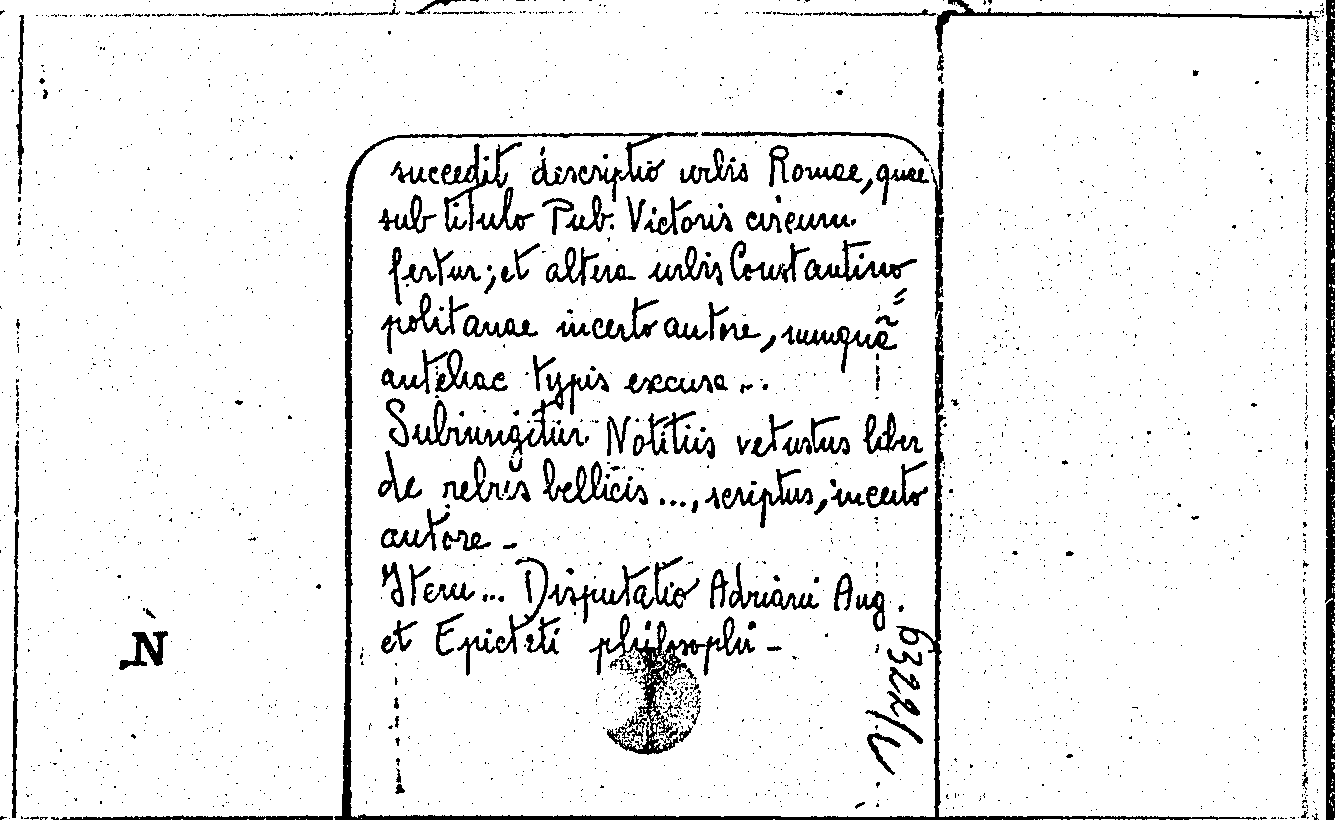 succedit descriptio urbis Romae, quae
sub titulo Pub. Victoris circum
fertur; et altera urbis Constantino
=
politanae incerto autore, nunquã
antehac typis excusa...
Subiungitur Notitiis vetustus liber
de rebus bellicis..., scriptus, incerto
autore -
Item... Disputatio Adriani Aug.
et Epicteti philosophi -
N